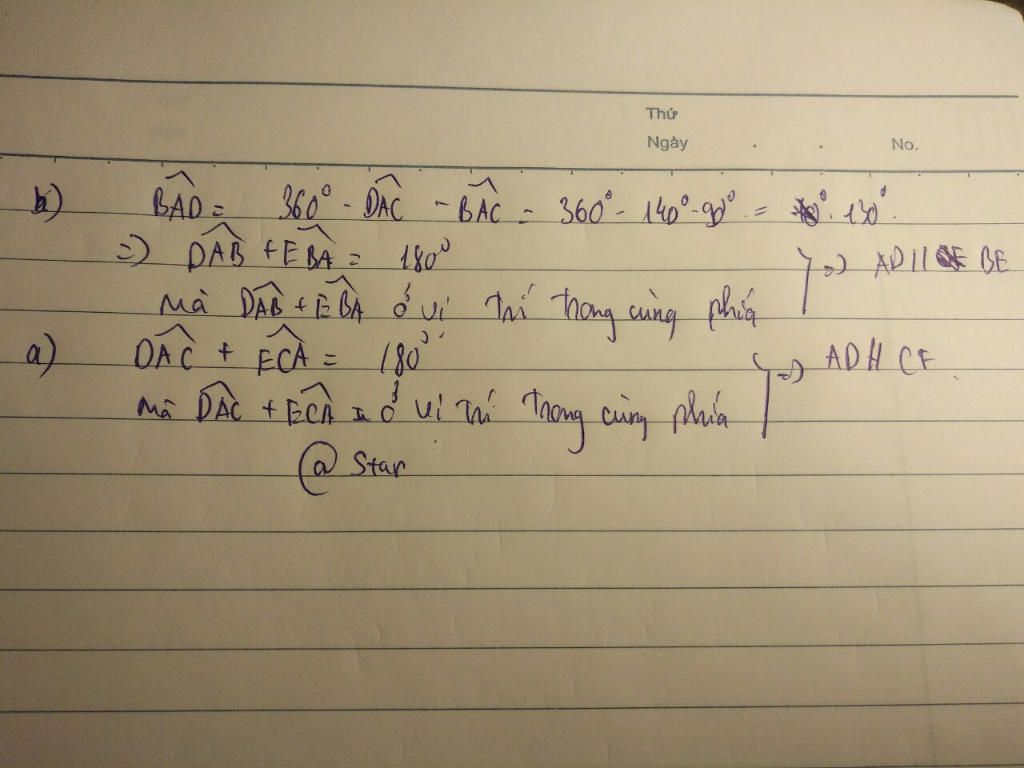 Thứ
Ngày . . No.
b) BAD̂ = 360° - DAĈ - BAĈ = 360° - 140° - 90° = 130°.
=) DAB̂ + EBÂ = 180°
Mà DAB̂ + EBÂ ở vị trí trong cùng phía } =) AD // BE
a) DAĈ + ECÂ = 180°
Mà DAĈ + ECÂ = ở vị trí trong cùng phía } =) AD // CF
@ Star